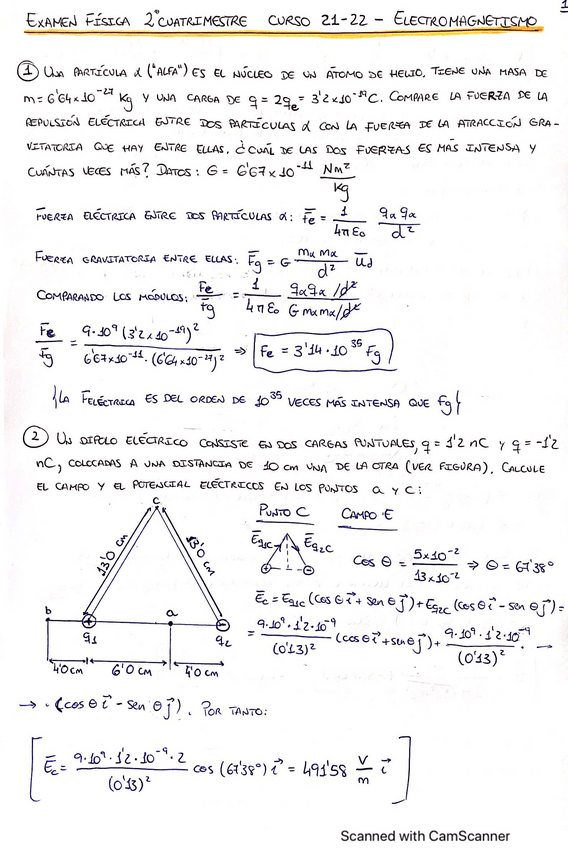 1
EXAMEN FÍSICA 2ºCUATRIMESTRE CURSO 21-22 - ELECTROMAGNETISMO
① UNA PARTÍCULA α ("ALFA") ES EL NÚCLEO DE UN ÁTOMO DE HELIO. TIENE UNA MASA DE
m = 6'64×10⁻²⁷ Kg Y UNA CARGA DE q = 2qe = 3'2×10⁻¹⁹C. COMPARE LA FUERZA DE LA
REPULSIÓN ELÉCTRICA ENTRE DOS PARTÍCULAS α CON LA FUERZA DE LA ATRACCIÓN GRA-
VITATORIA QUE HAY ENTRE ELLAS, ¿CUÁL DE LAS DOS FUERZAS ES MÁS INTENSA Y
CUÁNTAS VECES MÁS? DATOS: G = 6'67×10⁻¹¹ Nm²/Kg
FUERZA ELÉCTRICA ENTRE DOS PARTÍCULAS α: F̄e = 1/4πε₀ qα qα/d²
FUERZA GRAVITATORIA ENTRE ELLAS: F̄g = G mα mα/d² ūd
COMPARANDO LOS MÓDULOS: Fe/Fg = 1/4πε₀ qαqα/d²/G mαmα/d²
F̄e/F̄g = 9·10⁹ (3'2×10⁻¹⁹)²/6'67×10⁻¹¹·(6'64×10⁻²⁷)² ⇒ Fe = 3'14·10³⁵ Fg
{LA FELÉCTRICA ES DEL ORDEN DE 10³⁵ VECES MÁS INTENSA QUE Fg}
② UN DIPOLO ELÉCTRICO CONSISTE EN DOS CARGAS PUNTUALES, q = 1'2 nC Y q = -1'2
nC, COLOCADAS A UNA DISTANCIA DE 10 cm UNA DE LA OTRA (VER FIGURA). CALCULE
EL CAMPO Y EL POTENCIAL ELÉCTRICOS EN LOS PUNTOS a Y c:
c
13'0 cm
13'0 cm
b
a
+
-
q1
q2
4'0cm
6'0 cm
4'0 cm
PUNTO C CAMPO E
Ēq1C Ēq2C
+ -
cos θ = 5×10⁻²/13×10⁻² ⇒ θ = 67'38°
Ēc = Ēq1C (cos θ i⃗ + sen θ j⃗) + Eq2C (cos θ i⃗ - sen θ j⃗) =
= 9·10⁹·1'2·10⁻⁹/(0'13)² (cos θ i⃗ + sen θ j⃗) + 9·10⁹·1'2·10⁻⁹/(0'13)² · →
→ · (cos θ i⃗ - sen θ j⃗). POR TANTO:
[Ēc = 9·10⁹·1'2·10⁻⁹·2/(0'13)² cos (67'38°) i⃗ = 491'58 V/m i⃗]
Scanned with CamScanner